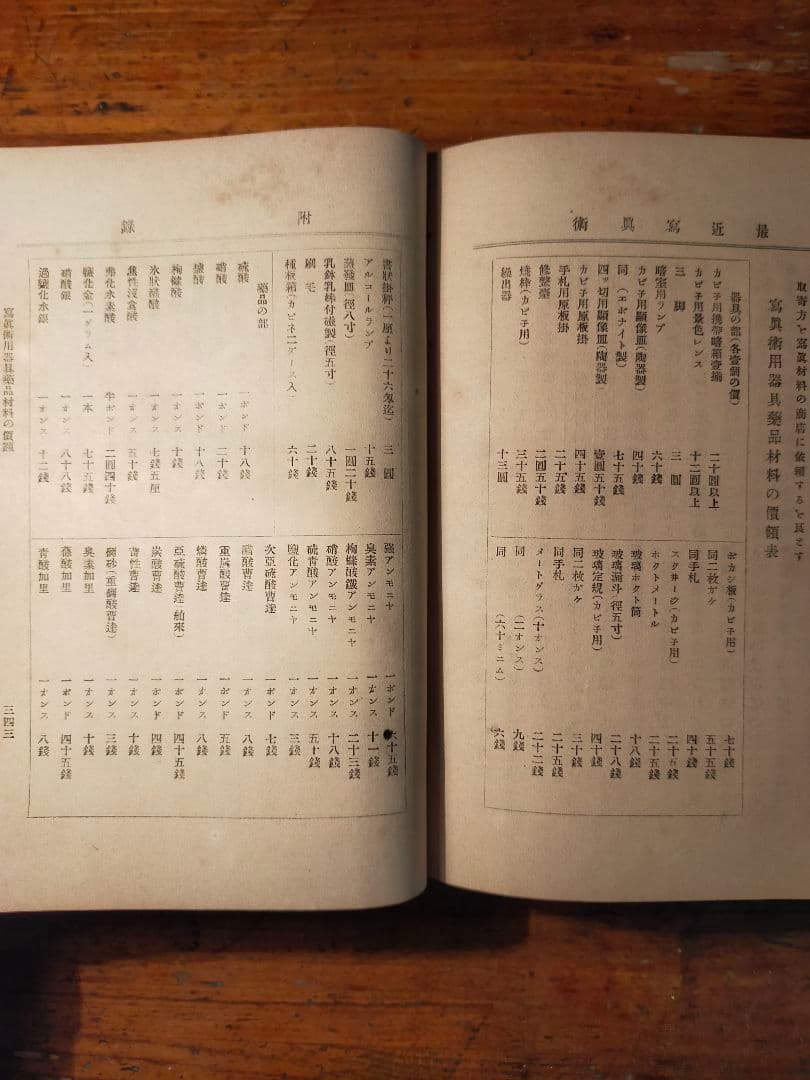 最近寫眞術
取寄方を寫眞材料の商店に依賴するを良とす
寫眞術用器具藥品材料の價額表
器具の部(各壹個の價)
カビ子用携帶暗箱壹揃 二十圓以上
カビ子用景色レンス 十二圓以上
三脚 三圓
暗室用ランプ 六十錢
カビ子用顯像皿(陶器製) 四十錢
同(エボナイト製) 七十五錢
四ッ切用顯像皿(陶器製) 壹圓五十錢
カビ子用原板掛 四十五錢
手札用原板掛 二十五錢
修整臺 二圓五十錢
燒枠(カビ子用) 三十五錢
繰出器 十三圓
ボカシ板(カビ子用) 七十錢
同二枚ガケ 五十五錢
同手札 四十錢
スクヰージ(カビ子用) 二十五錢
ホクトメートル 二十五錢
玻璃ホクト筒 十八錢
玻璃漏斗(徑五寸) 二十八錢
玻璃定規(カビ子用) 四十錢
同二枚ガケ 三十錢
同手札 二十五錢
メートグラス(十オンス) 二十二錢
同(二オンス) 九錢
同(六十ミニム) 六錢
附錄
書狀掛秤(一厘より二十六匁迄) 三圓
アルコールランプ 十五錢
蒸發皿(徑八寸) 一圓二十錢
乳鉢乳棒付磁製(徑五寸) 八十五錢
刷毛 二十錢
種板箱(カビネ二ケース入) 六十錢
藥品の部
硫酸 一ポンド 十八錢
硝酸 一ポンド 二十錢
鹽酸 一ポンド 十八錢
枸櫞酸 一オンス 十錢
氷狀醋酸 一オンス 七錢五厘
焦性沒食酸 一オンス 五十錢
弗化水素酸 半ポンド 二圓四十錢
鹽化金(一グラム入) 一本 七十五錢
硝酸銀 一オンス 八十八錢
過鹽化水銀 一オンス 十二錢
強アンモニヤ 一ポンド 十五錢
臭素アンモニヤ 一オンス 十一錢
枸櫞酸鐵アンモニヤ 一オンス 二十三錢
硝酸アンモニヤ 一オンス 十八錢
硫靑酸アンモニヤ 一オンス 五十錢
鹽化アンモニヤ 一オンス 三錢
次亞硫酸曹達 一ポンド 七錢
醋酸曹達 一オンス 八錢
重炭酸曹達 一ポンド 五錢
燐酸曹達 一オンス 八錢
亞硫酸曹達(舶來) 一ポンド 四十五錢
炭酸曹達 一ポンド 四錢
苛性曹達 一オンス 十錢
硼砂(重硼酸曹達) 一オンス 三錢
臭素加里 一オンス 十錢
蓚酸加里 一ポンド 四十五錢
靑酸加里 一オンス 八錢
寫眞術用器具藥品材料の價額
三四三